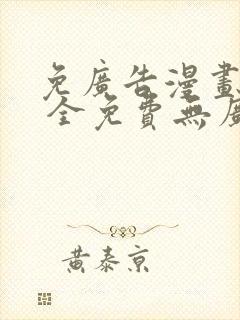 免廣告漫畫
全免費無廣
黃泰京